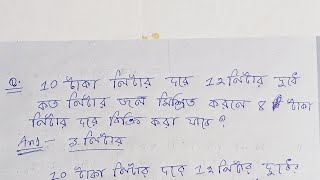 Q. 10 টাকা লিটার দরে 12 লিটার দুধে
কত লিটার জল মিশ্রিত করলে 8 টাকা
লিটার দরে বিক্রি করা যাবে?
Ans:- 3 লিটার
10 টাকা লিটার দরে 12 লিটার দুধের